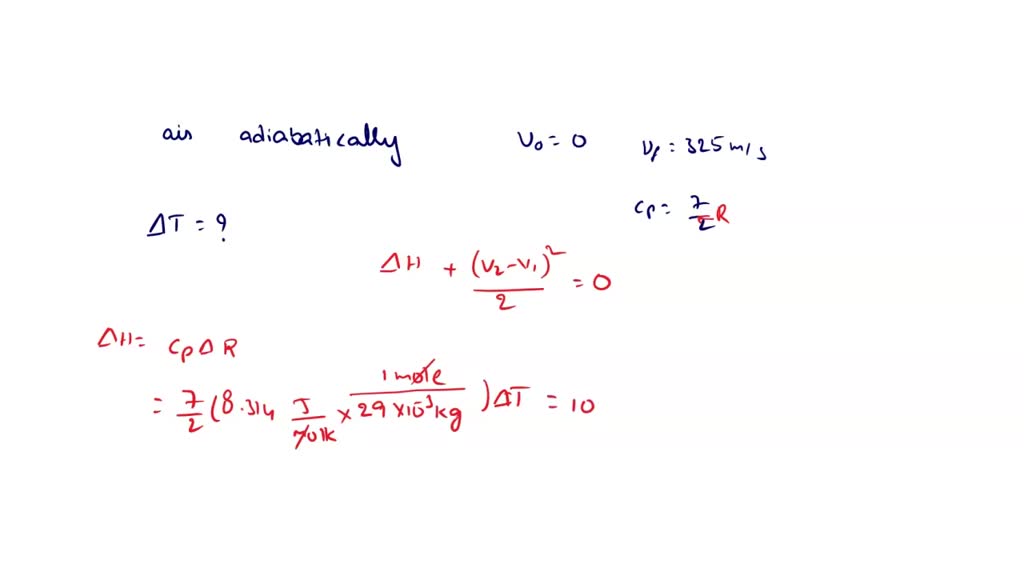 air adiabatically V₀ = 0 Vf = 325 m/s
ΔT = ? Cp = 7/2 R
ΔH + (V₂-V₁)²/2 = 0
ΔH = Cp Δ R
= 7/2 (8.314 J/molk × 1 mole/29 × 10⁻³ kg) ΔT = 10